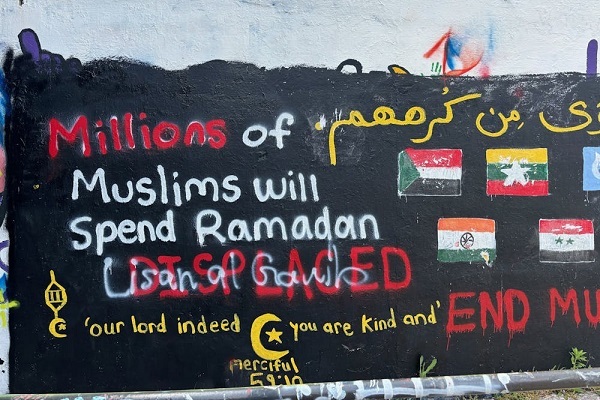 Millions of
وى مِن كُرههم.
Muslims will
Spend Ramadan
DISPLACED
Lisan al Gaib
'our lord indeed you are Kind and'
END MU
merciful
59:10